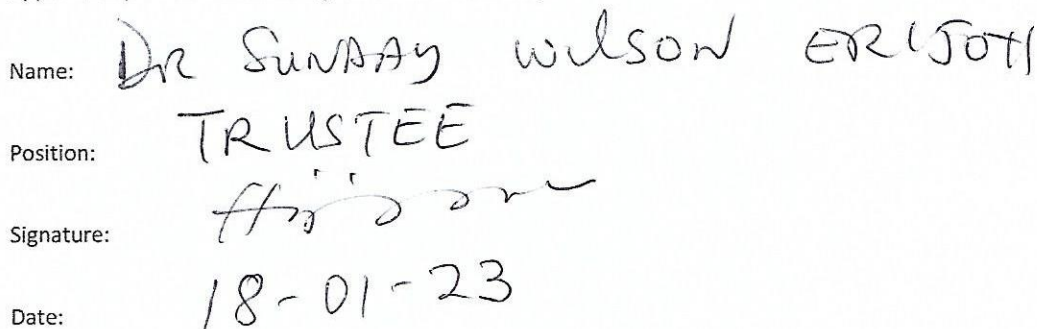 Name: DR SUNDAY WILSON
Position: TRUSTEE
Signature:
Date: 18-01-23